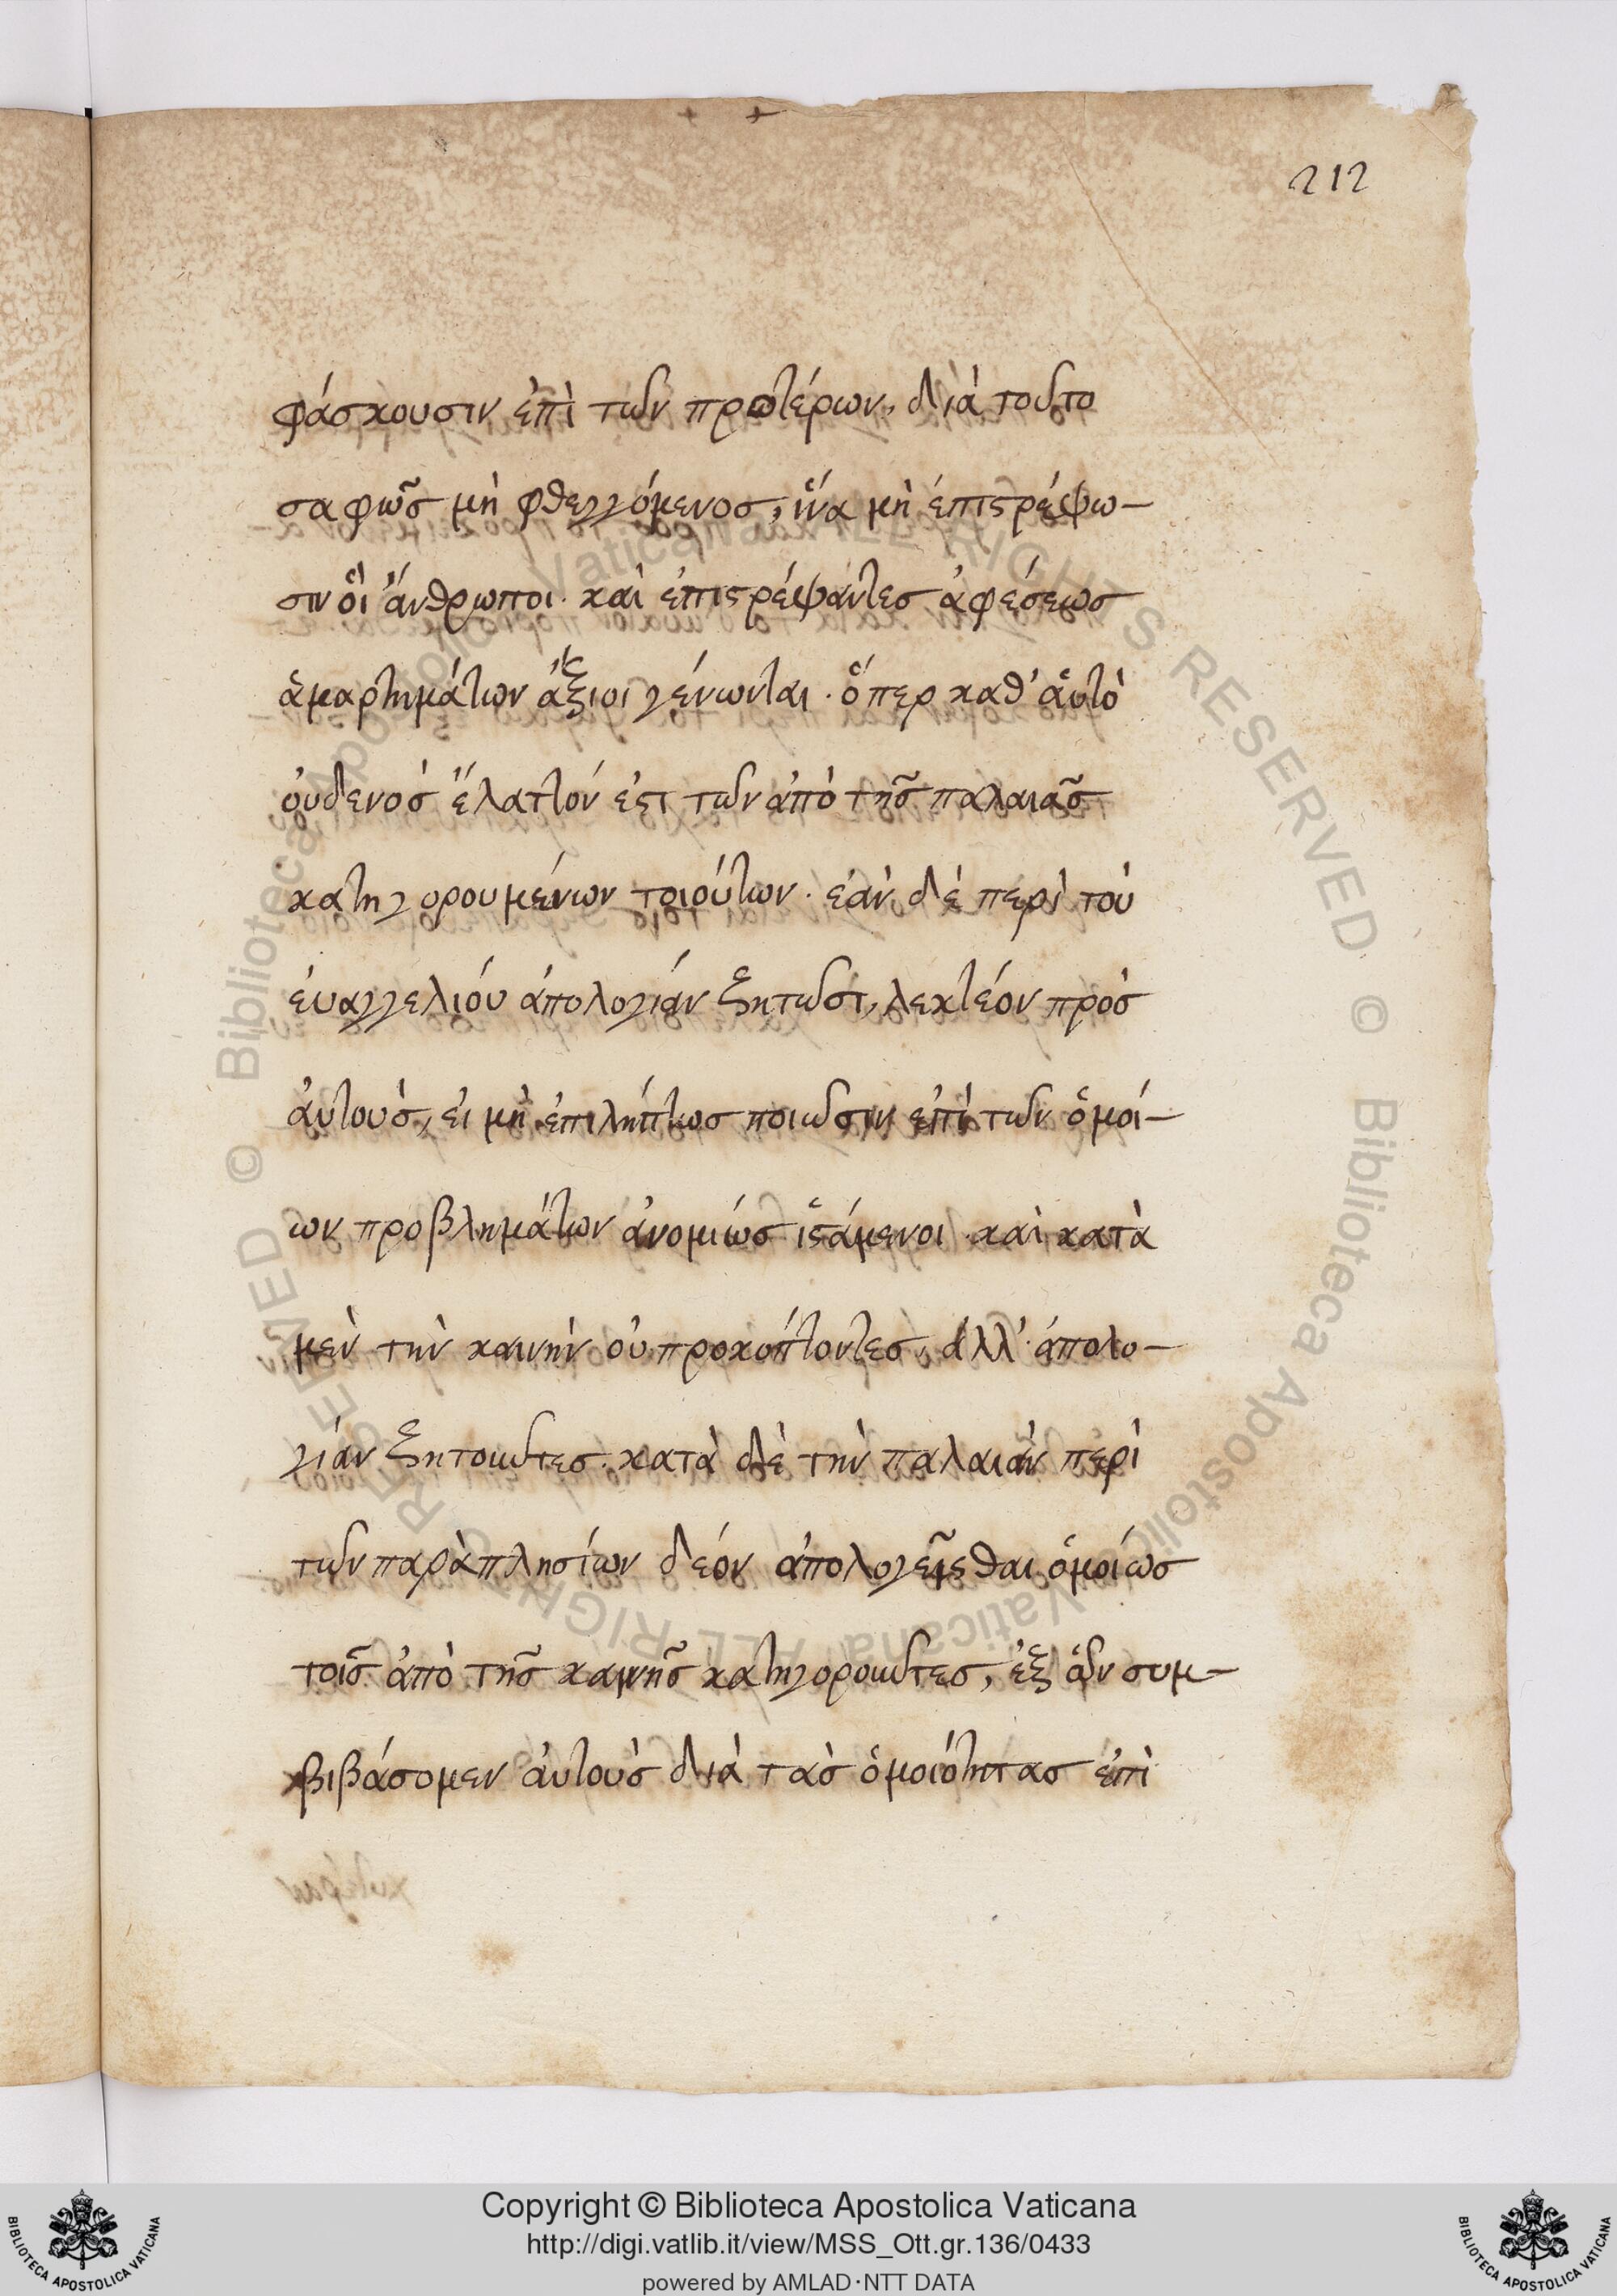 212
φάσκουσιν ἐπὶ τῶν προτέρων, διὰ τοῦτο
σαφῶς μὴ φθεγγόμενος, ἵνα μὴ ἐπιστρέψω-
σιν οἱ ἄνθρωποι· καὶ ἐπιστρέψαντες ἀφέσεως
ἁμαρτημάτων ἄξιοι γένωνται· ὅπερ καθ' αὑτὸ
οὐδενὸς ἔλαττόν ἐστι τῶν ἀπὸ τῆς παλαιᾶς
κατηγορουμένων τοιούτων· ἐὰν δὲ περὶ τοῦ
εὐαγγελίου ἀπολογίαν ζητῶσι, λεκτέον πρὸς
αὐτοὺς, εἰ μὴ ἐπιλήπτως ποιῶσιν ἐπὶ τῶν ὁμοί-
ων προβλημάτων ἀνομίως ἱστάμενοι· καὶ κατὰ
μὲν τὴν καινὴν οὐ προκόπτοντες, ἀλλ' ἀπολο-
γίαν ζητοῦντες· κατὰ δὲ τὴν παλαιὰν περὶ
τῶν παραπλησίων δέον ἀπολογεῖσθαι ὁμοίως
τοῖς ἀπὸ τῆς καινῆς κατηγοροῦντες, ἐξ ὧν συμ-
βιβάσομεν αὐτοὺς διὰ τὰς ὁμοιότητας ἐπὶ
Copyright © Biblioteca Apostolica Vaticana
http://digi.vatlib.it/view/MSS_Ott.gr.136/0433
powered by AMLAD·NTT DATA
© Biblioteca Apostolica Vaticana ALL RIGHTS RESERVED © Biblioteca Apostolica Vaticana ALL RIGHTS RESERVED
BIBLIOTECA APOSTOLICA VATICANA
BIBLIOTECA APOSTOLICA VATICANA